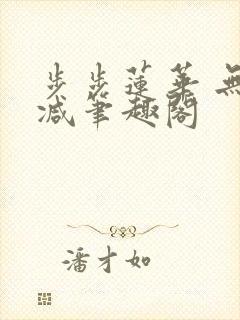 步步莲华 無
减笔趣阁
潘才如